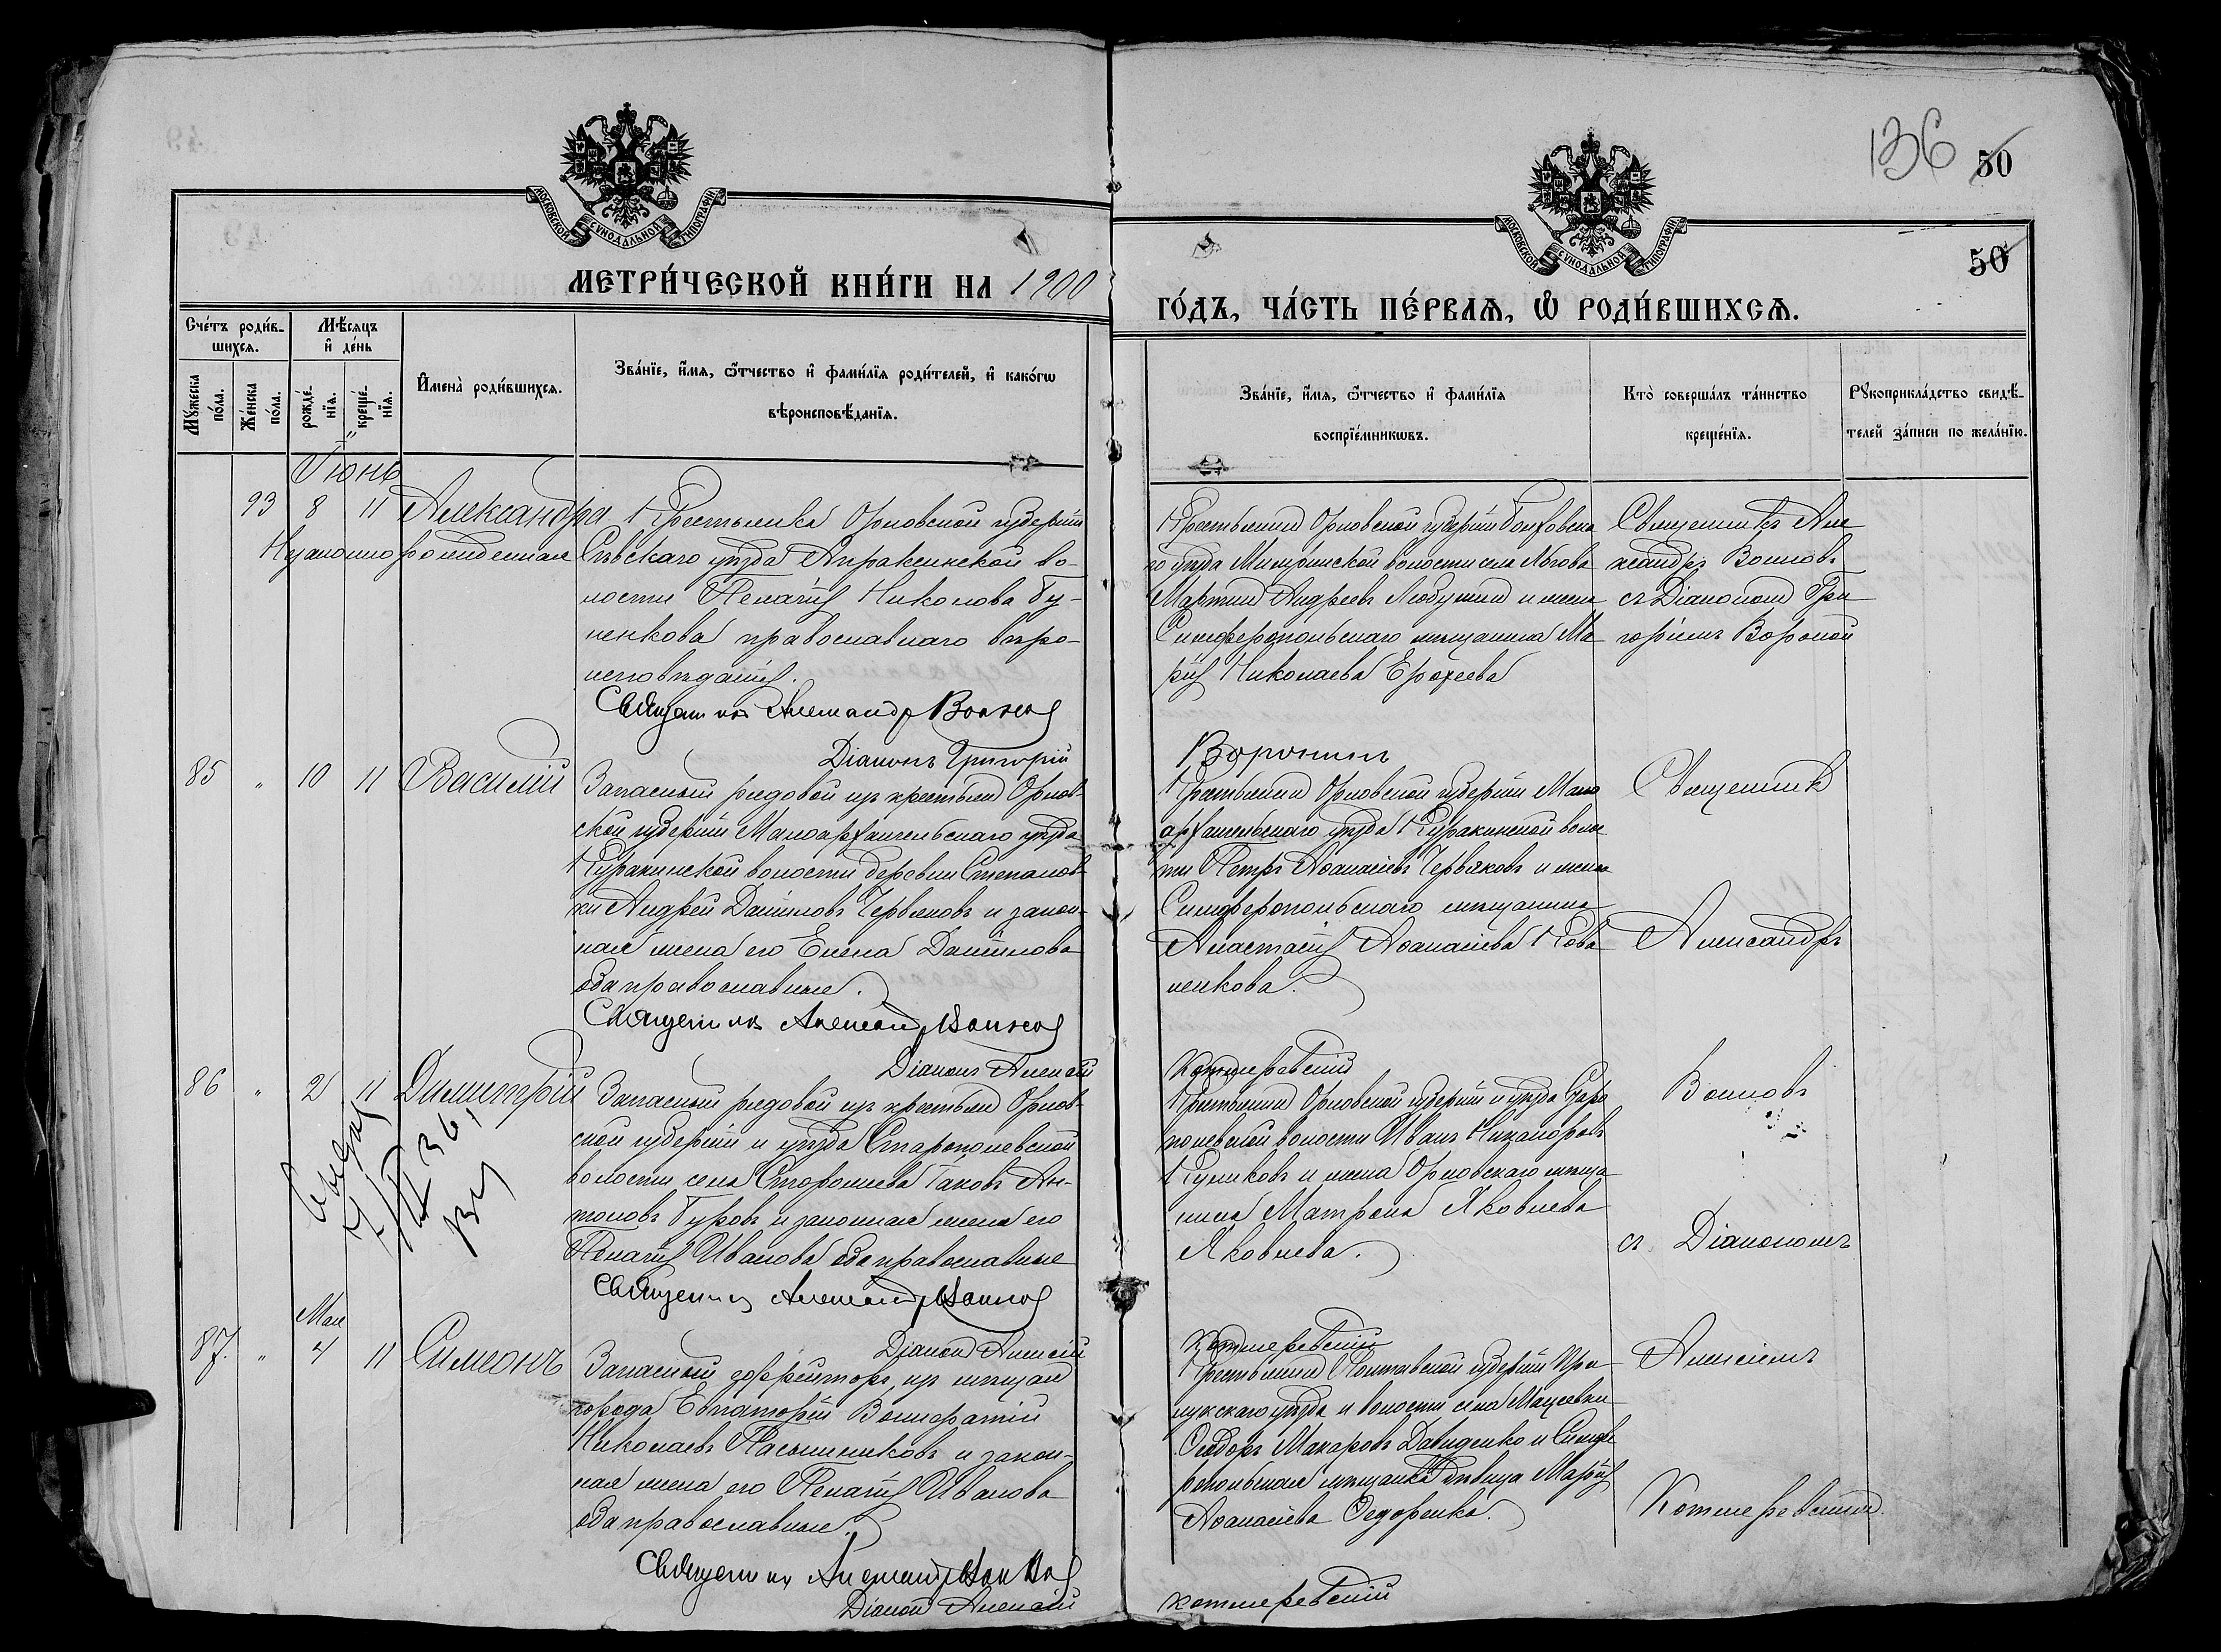 136 50
50
МОСКОВСКОЙ СУНОДАЛЬНОЙ ТИПОГРАФІИ.
МОСКОВСКОЙ СУНОДАЛЬНОЙ ТИПОГРАФІИ.
МЕТРИ́ЧЕСКОЙ КНИ́ГИ НА 1900
ГО́ДЪ, ЧА́СТЬ ПЕ́РВАѦ, Ѽ РОДИ́ВШИХСѦ.
Сче́тъ роди́в-
шихсѧ.
Мѣ́сѧцъ
и҆ де́нь
Мꙋ́жеска по́ла.
Же́нска по́ла.
рожде́нїѧ.
креще́нїѧ.
И҆мена̀ роди́вшихсѧ.
Зва́нїе, и҆́мѧ, ѻ҆́тчество и҆ фами́лїѧ роди́телей, и҆ како́гѡ
вѣроисповѣ́данїѧ.
Зва́нїе, и҆́мѧ, ѻ҆́тчество и҆ фами́лїѧ
воспрїе́мникѡвъ.
Кто̀ соверша́лъ та́инство
креще́нїѧ.
Рꙋкоприкла́дство свидѣ́-
телей за́писи по жела́нїю.
Іюнь
93 8 11 Александра
Незаконнорожденная
Крестьянка Орловской губерніи
Сѣвскаго уѣзда Апраксинской во-
лости Пелагія Николова Гу-
ненкова православнаго вѣро-
исповѣданія.
Священникъ Александръ Воиновъ
Діаконъ Григорій
Крестьянинъ Орловской губерніи Болховска
го уѣзда Милоринской волости села Льгова
Мартинъ Андреевъ Любушкин и жена
Симферопольскаго мѣщанина Ма
рія Николаева Ерохеева
Воронин
Священникъ Але
ксандръ Воиновъ
съ Діакономъ Гри
горіемъ Вороной
85 " 10 11 Василій
Запасный рядовой изъ крестьянъ Орлов-
ской губерніи Малоархангельскаго уѣзда
Куракинской волости деревни Степанов-
ки Андрей Даниловъ Червяковъ и закон-
ная жена его Елена Данилова
оба православные.
Священникъ Александръ Воиновъ
Діаконъ Алексій
Крестьянинъ Орловской губерніи Мало
архангельскаго уѣзда Куракинской волос
ти Петръ Аѳанасіевъ Червяковъ и жена
Симферопольскаго мѣщанина
Анастасія Аѳанасіева Кова
ленкова.
Котляревскій
Священникъ
Александръ
86 " 2 11 Димитрій
Запасный рядовой изъ крестьянъ Орлов-
ской губерніи и уѣзда Старополевской
волости села Іаковъ Ан-
тоновъ Гуровъ и законная жена его
Пелагія Иванова оба православные
Священникъ Александръ Воиновъ
Діаконъ Алексій
Крестьянинъ Орловской губерніи и уѣзда Старо
полевской волости Иванъ Никаноровъ
Куликовъ и жена Орловскаго мѣща
нина Матрона Яковлева
Яковлева.
Котляревскій
Воиновъ
съ Діакономъ
Мая
87. " 4 11 Симеонъ
Запасный ефрейторъ, изъ мѣщанъ
города Евпаторіи Вонифатій
Николаевъ Пасынниковъ и закон-
ная жена его Пелагія Иванова
оба православные.
Священникъ Александръ Воиновъ
Діаконъ Алексій
Крестьянинъ Полтавской губерніи При-
лукскаго уѣзда и волости села Мацеевки
Ѳеодоръ Макаровъ Давиденко и Симфе
ропольская мѣщанка дѣвица Марія
Аѳанасіева Ѳедоренко.
Котляревскій
Алексіемъ
Котляревскимъ.